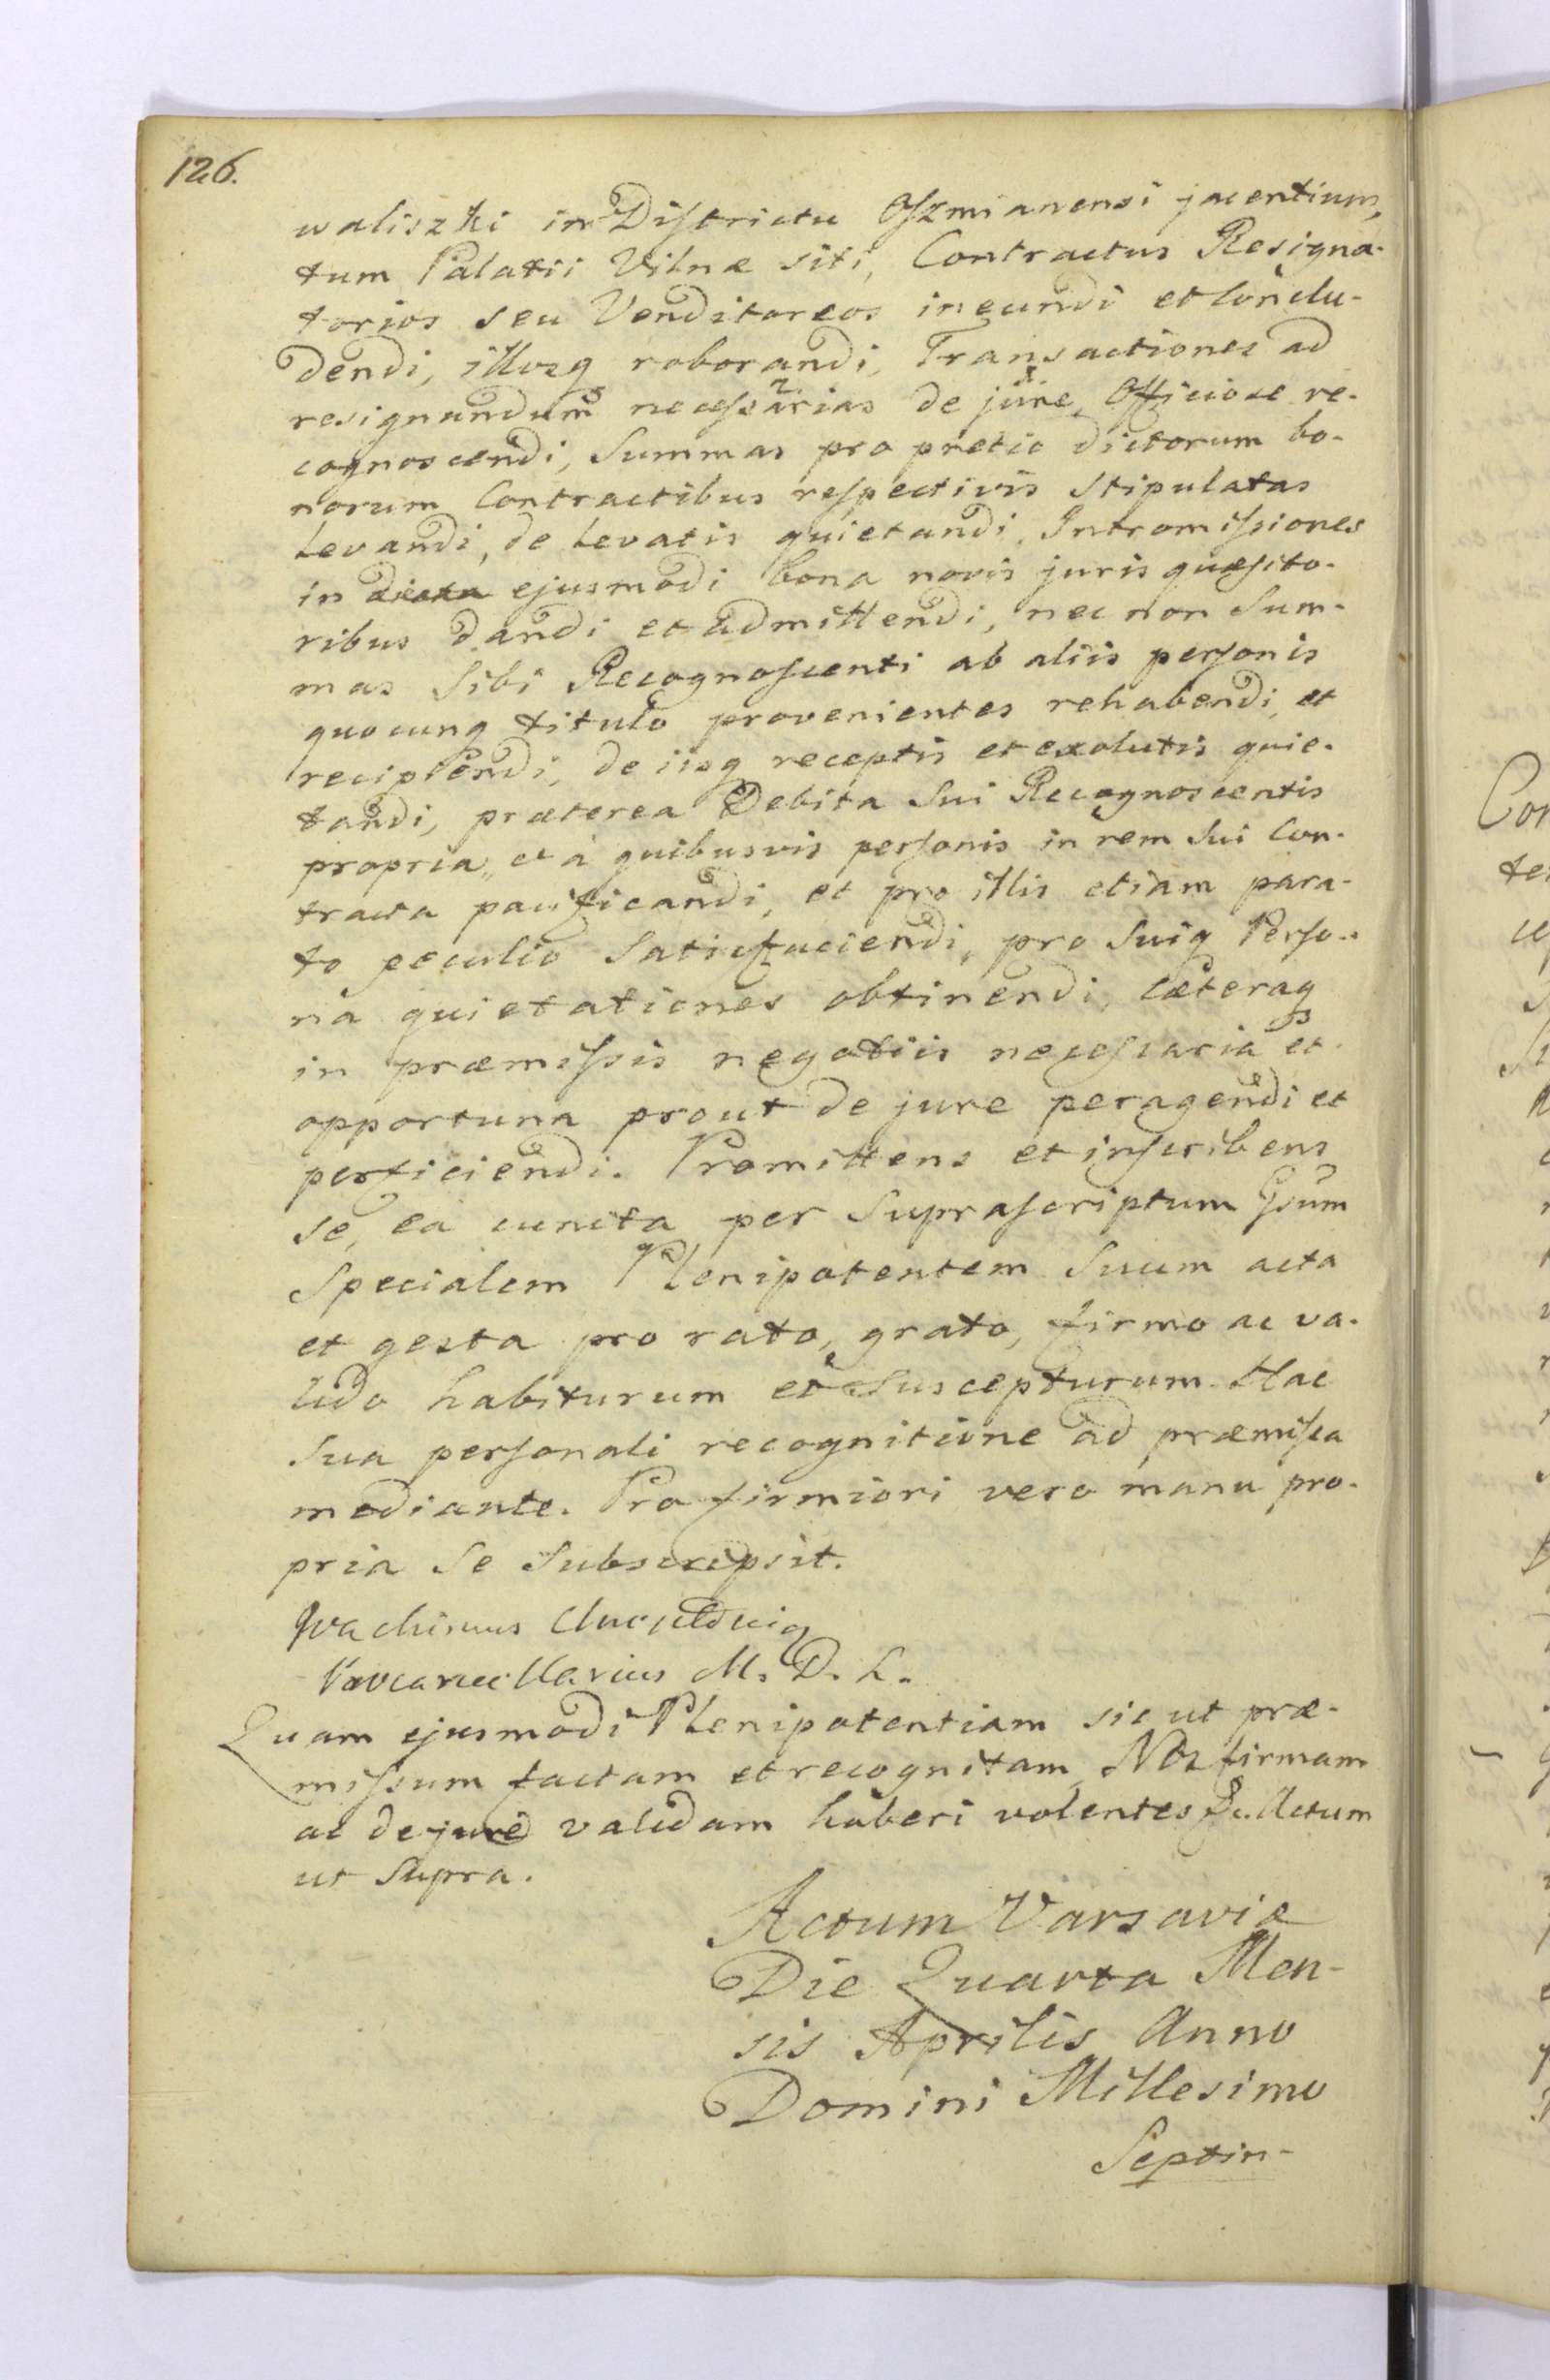 126.
waliszki in Districtu Oszmianensi jacentium,
tum Palatii Vilnæ siti, Contractus Resigna-
torios seu Venditoreos ineundi et conclu-
dendi, illosq roborandi, Transactiones ad
resignandum necessarias de jure, Officiose re-
cognoscendi, Summas pro pretio dictorum bo-
norum Contractibus respectivis stipulatas
Levandi, de Levatis quietandi, Intromissiones
in ejusmodi bona novis juris quæsito-
ribus dandi et admittendi, nec non Sum-
mas Sibi Recognoscenti ab aliis personis
quocunq titulo provenientes rehabendi, et
recipiendi, de iisq receptis et exolutis quie-
tandi, præterea Debita Sui Recognoscentis
propria, et à quibusvis personis in rem Sui Con-
tracta pacificandi, et pro illis etiam para-
to peculio Satisfaciendi, pro Suiq Perso-
na quietationes obtinendi, Cæteraq
in præmissis negotiis necessaria et
opportuna prout de jure peragendi et
perficiendi. Promittens et inscribens
se, ea cuncta per Suprascriptum Gsum
Specialem Plenipotentem Suum acta
et gesta pro rato, grato, firmo ac va-
lido habiturum et Suscepturum. Hac
Sua personali recognitione ad præmissa
mediante. Pro firmiori vero manu pro-
pria Se Subscripsit.
M. D. L.
Quam ejusmodi Plenipotentiam sic ut præ-
missum factam et recognitam, Nos firmam
ac de jure validam haberi volentes &c. Actum
ut Supra.
Actum Varsaviæ
Die Quarta Men-
sis Aprilis Anno
Domini Millesimo
Septin-
Con